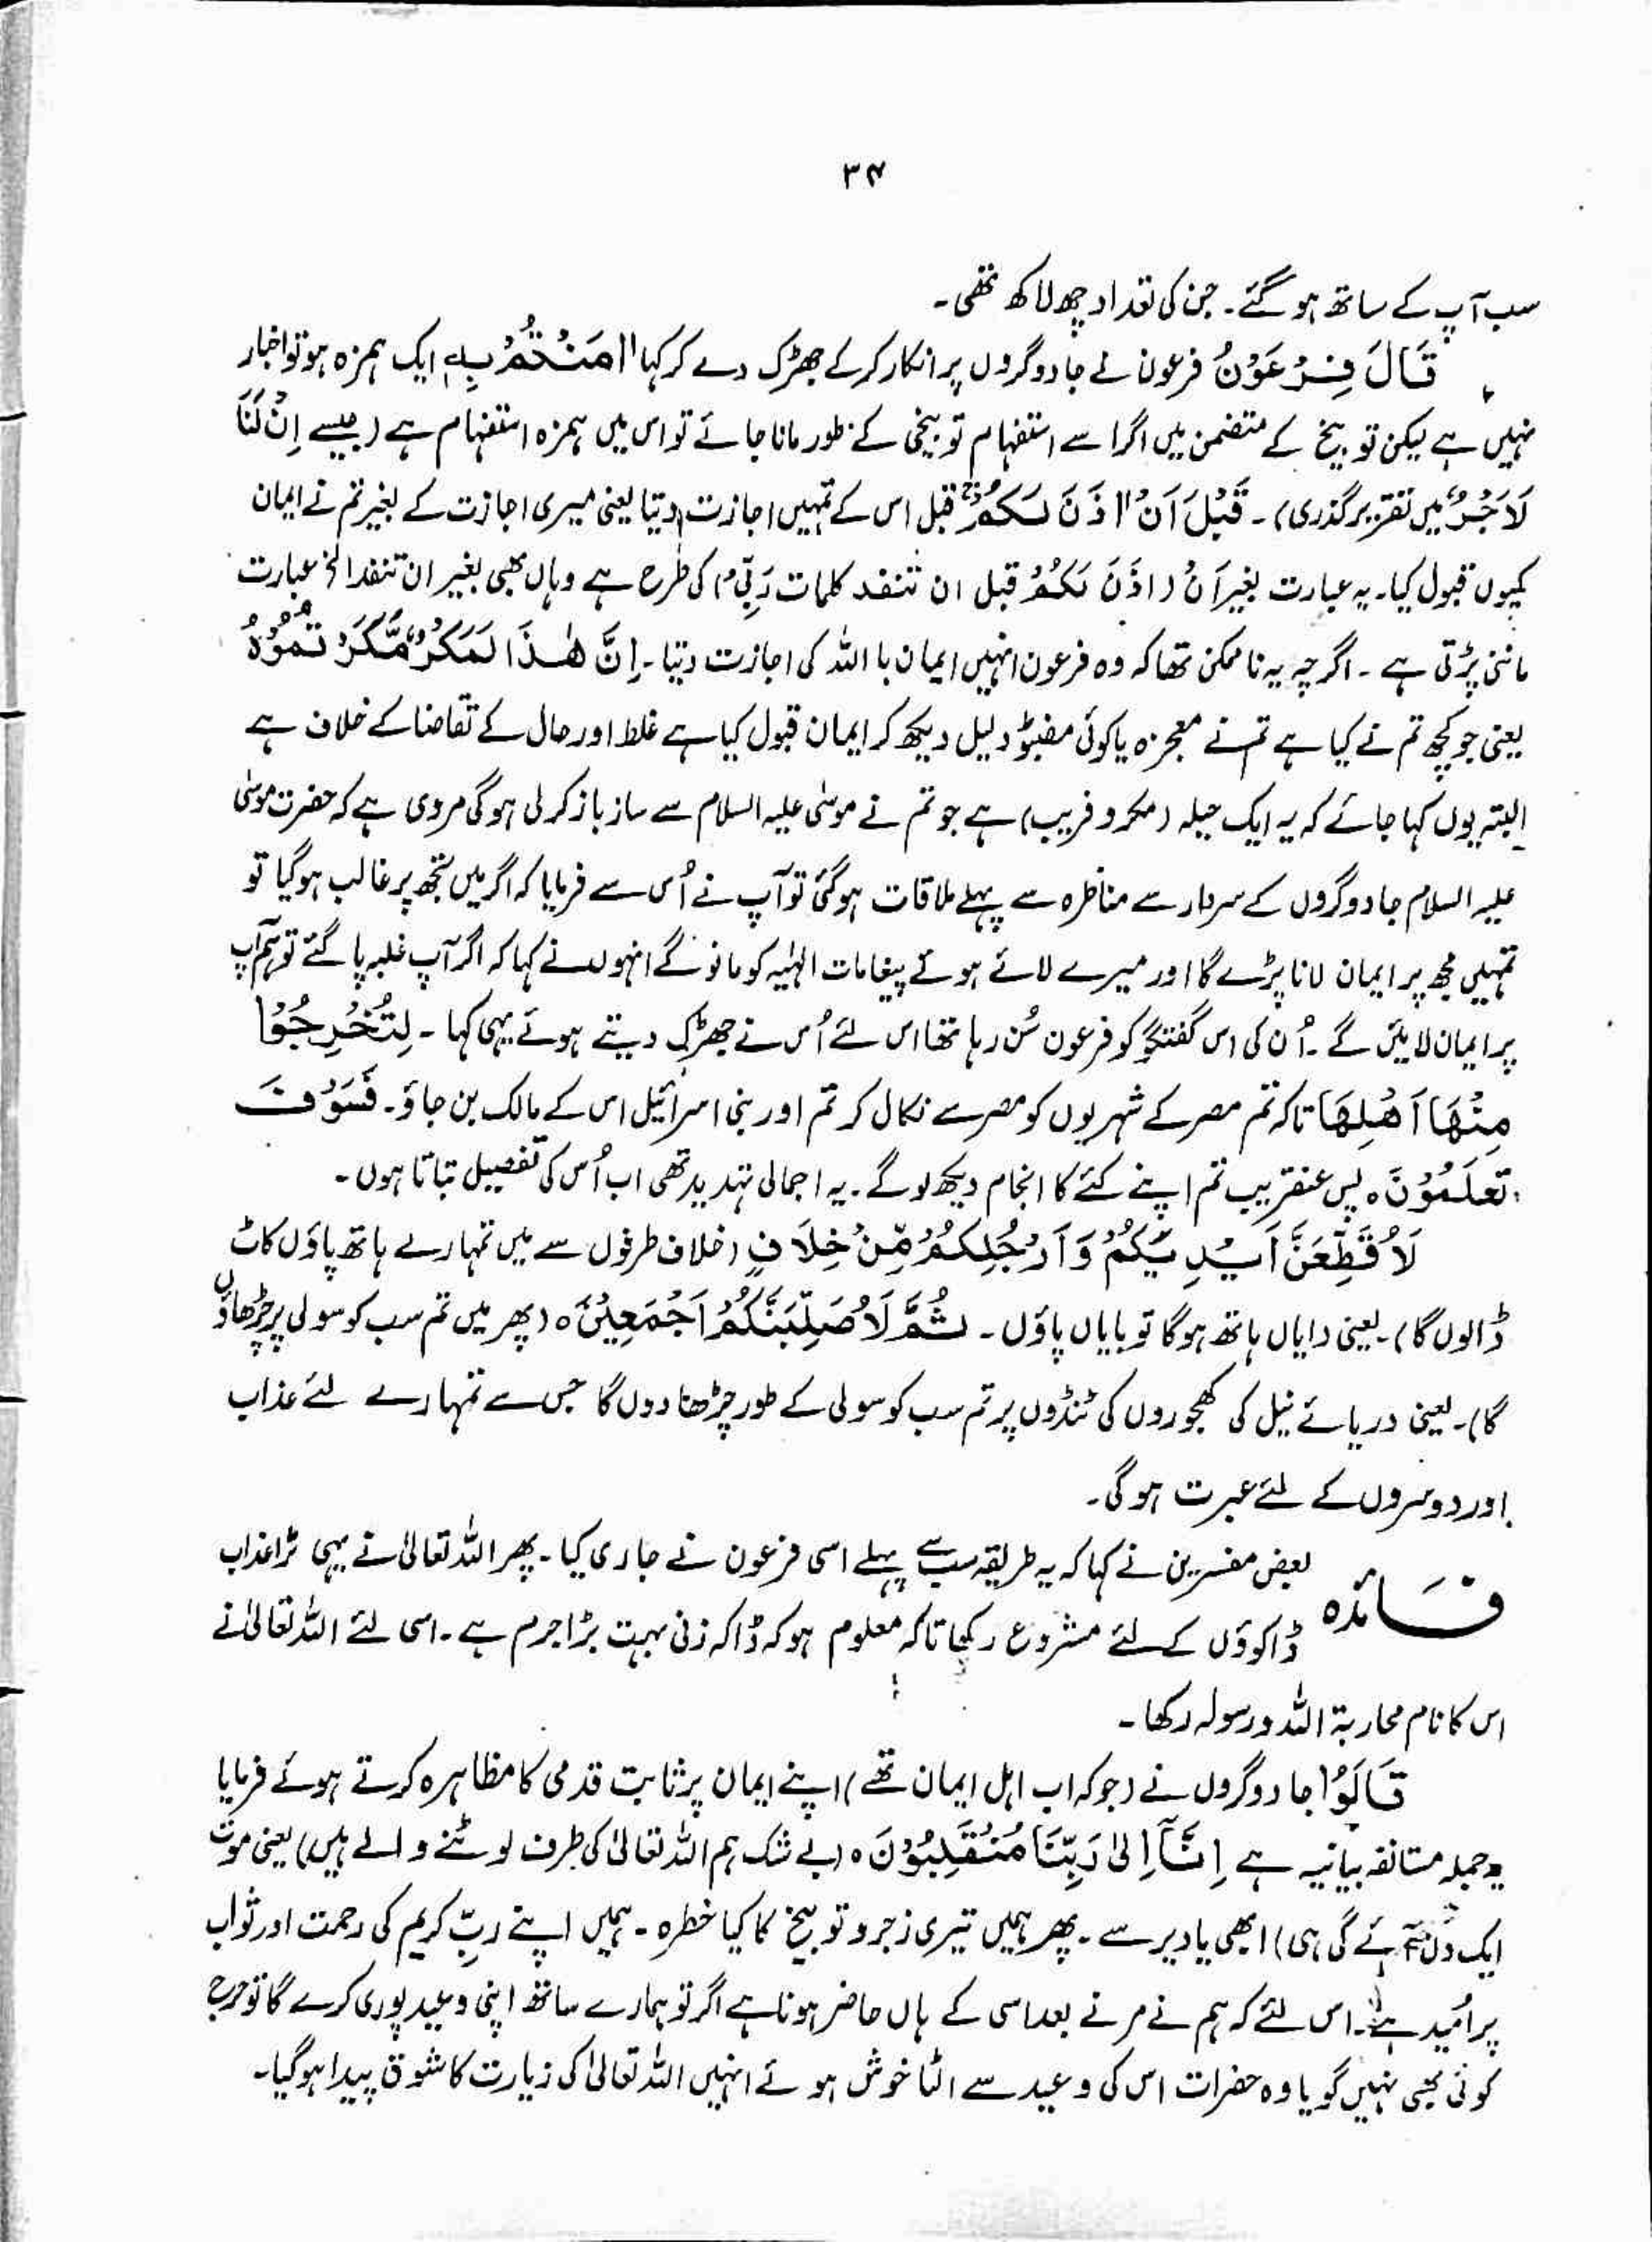 ۳۴
سب آپ کے ساتھ ہو گئے۔ جن کی تعداد چھ لاکھ تھی۔
قَالَ فِرْعَوْنُ فرعون نے جادوگروں پر انکار کرکے جھڑک دے کر کہا اٰمَنْتُمْ بِهٖ ایک ہمزہ ہو تو اخبار
نہیں ہے لیکن توبیخ کے متضمن میں اگر اسے استفہام توبیخی کے طور مانا جائے تو اس میں ہمزہ استفہام ہے (جیسے اِنْ لَنَا
لَاَجْرًا میں تقریر گذری)۔ قَبْلَ اَنْ اٰذَنَ لَكُمْ قبل اس کے تمہیں اجازت دیتا یعنی میری اجازت کے بغیر تم نے ایمان
کیوں قبول کیا۔ یہ عبارت بغیر اَنْ (اٰذَنَ لَكُمْ قبل ان تنفد کلمات رَبِّی) کی طرح ہے وہاں بھی بغیر ان تنفد الخ عبارت
ماننی پڑتی ہے۔ اگرچہ یہ ناممکن تھا کہ وہ فرعون انہیں ایمان با اللہ کی اجازت دیتا۔ اِنَّ هٰذَا لَمَكْرٌ مَّكَرْتُمُوْهُ
یعنی جو کچھ تم نے کیا ہے تم نے معجزہ یا کوئی مضبوط دلیل دیکھ کر ایمان قبول کیا ہے غلط اور حال کے تقاضا کے خلاف ہے
البتہ یوں کہا جائے کہ یہ ایک حیلہ (مکر و فریب) ہے جو تم نے موسیٰ علیہ السلام سے ساز باز کرلی ہوگی مروی ہے کہ حضرت موسیٰ
علیہ السلام جادوگروں کے سردار سے مناظرہ سے پہلے ملاقات ہوگئی تو آپ نے اُس سے فرمایا کہ اگر میں تجھ پر غالب ہوگیا تو
تمہیں مجھ پر ایمان لانا پڑے گا اور میرے لائے ہوئے پیغامات الہٰیہ کو مانو گے انہوں نے کہا کہ اگر آپ غلبہ پا گئے تو ہم آپ
پر ایمان لائیں گے۔ اُن کی اس گفتگو کو فرعون سُن رہا تھا اس لئے اُس نے جھڑک دیتے ہوئے یہی کہا۔ لِتُخْرِجُوْا
مِنْهَا اَهْلَهَا تاکہ تم مصر کے شہریوں کو مصر سے نکال کر تم اور بنی اسرائیل اس کے مالک بن جاؤ۔ فَسَوْفَ
تَعْلَمُوْنَ ہ پس عنقریب تم اپنے کئے کا انجام دیکھ لو گے۔ یہ اجمالی تہدید تھی اب اُس کی تفصیل بتاتا ہوں۔
لَاُقَطِّعَنَّ اَيْدِيَكُمْ وَ اَرْجُلَكُمْ مِّنْ خِلَافٍ (خلاف طرفوں سے میں تمہارے ہاتھ پاؤں کاٹ
ڈالوں گا)۔ یعنی دایاں ہاتھ ہوگا تو بایاں پاؤں۔ ثُمَّ لَاُصَلِّبَنَّكُمْ اَجْمَعِيْنَ ہ (پھر میں تم سب کو سولی پر چڑھاؤں
گا)۔ یعنی دریائے نیل کی کھجوروں کی ٹنڈوں پر تم سب کو سولی کے طور چڑھا دوں گا جس سے تمہارے لئے عذاب
اور دوسروں کے لئے عبرت ہوگی۔
فائدہ بعض مفسرین نے کہا کہ یہ طریقہ سب سے پہلے اسی فرعون نے جاری کیا۔ پھر اللہ تعالیٰ نے یہی بڑا عذاب
ڈاکوؤں کے لئے مشروع رکھا تاکہ معلوم ہو کہ ڈاکہ زنی بہت بڑا جرم ہے۔ اسی لئے اللہ تعالیٰ نے
اس کا نام محاربۃ اللہ و رسولہ رکھا۔
قَالُوْا جادوگروں نے (جو کہ اب اہل ایمان تھے) اپنے ایمان پر ثابت قدمی کا مظاہرہ کرتے ہوئے فرمایا
یہ جملہ مستانفہ بیانیہ ہے اِنَّآ اِلٰى رَبِّنَا مُنْقَلِبُوْنَ ہ (بے شک ہم اللہ تعالیٰ کی طرف لوٹنے والے ہیں) یعنی موت
ایک دن آئے گی ہی) ابھی یا دیر سے۔ پھر ہمیں تیری زجر و توبیخ کا کیا خطرہ۔ ہمیں اپنے ربّ کریم کی رحمت اور ثواب
پر اُمید ہے۔ اس لئے کہ ہم نے مرنے بعد اسی کے ہاں حاضر ہونا ہے اگر تو ہمارے ساتھ اپنی وعید پوری کرے گا تو حرج
کوئی بھی نہیں گویا وہ حضرات اس کی وعید سے الٹا خوش ہوئے انہیں اللہ تعالیٰ کی زیارت کا شوق پیدا ہوگیا۔